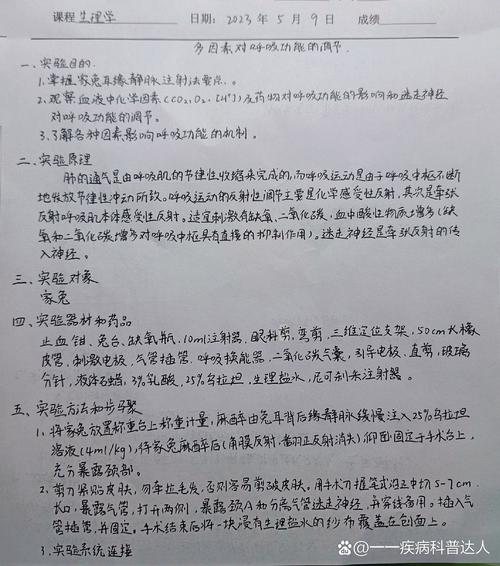 课程 生理学 日期: 2023 年 5 月 9 日 成绩
多因素对呼吸功能的调节
一、实验目的.
1.掌握家兔耳缘静脉注射法要点.。
2.观察血液中化学因素(CO₂、O₂、[H⁺])及药物对呼吸功能的影响和迷走神经
对呼吸功能的调节。
3.了解各种因素影响呼吸功能的机制。
二、实验原理
肺的通气是由呼吸肌的节律性收缩来完成的,而呼吸运动是由于呼吸中枢不断
地发放节律性冲动所致。呼吸运动的反射性调节主要是化学感受性反射,其次是牵张
反射呼吸肌本体感受性反射。适宜刺激有缺氧、二氧化碳,血中酸性物质增多(缺
氧和二氧化碳增多对呼吸中枢具有直接的抑制作用)。迷走神经是牵张反射的传
入神经。
三、实验对象
家兔
四、实验器材和药品
止血钳、兔台、缺氧瓶,10ml注射器、眼科剪、弯剪、三维定位支架,50cm长橡
皮管,刺激电极、气管插管、呼吸换能器、二氧化碳气囊,引导电极、直剪,玻璃
分针,液体石蜡,3%乳酸,25%乌拉坦,生理盐水,尼可刹米注射器。
五、实验方法和步骤
1、将家兔放置称重台上称重计量,麻醉由兔耳背后缘静脉缓慢注入25%乌拉坦
溶液(4ml/kg),待家兔麻醉后(角膜反射、翻正反射消失)仰面固定于手术台上,
充分暴露颈部。
2、剪刀紧贴皮肤,勿牵拉毛发,否则容易剪破皮肤。用手术刀握笔式沿正中切5-7cm
长口,暴露气管,打开两侧,暴露颈A和分离气管迷走神经,并穿线备用。插入气
管插管,并固定。手术结束后将一块浸有生理盐水的纱布覆盖在创面上。
3.实验系统连接
一一疾病科普达人